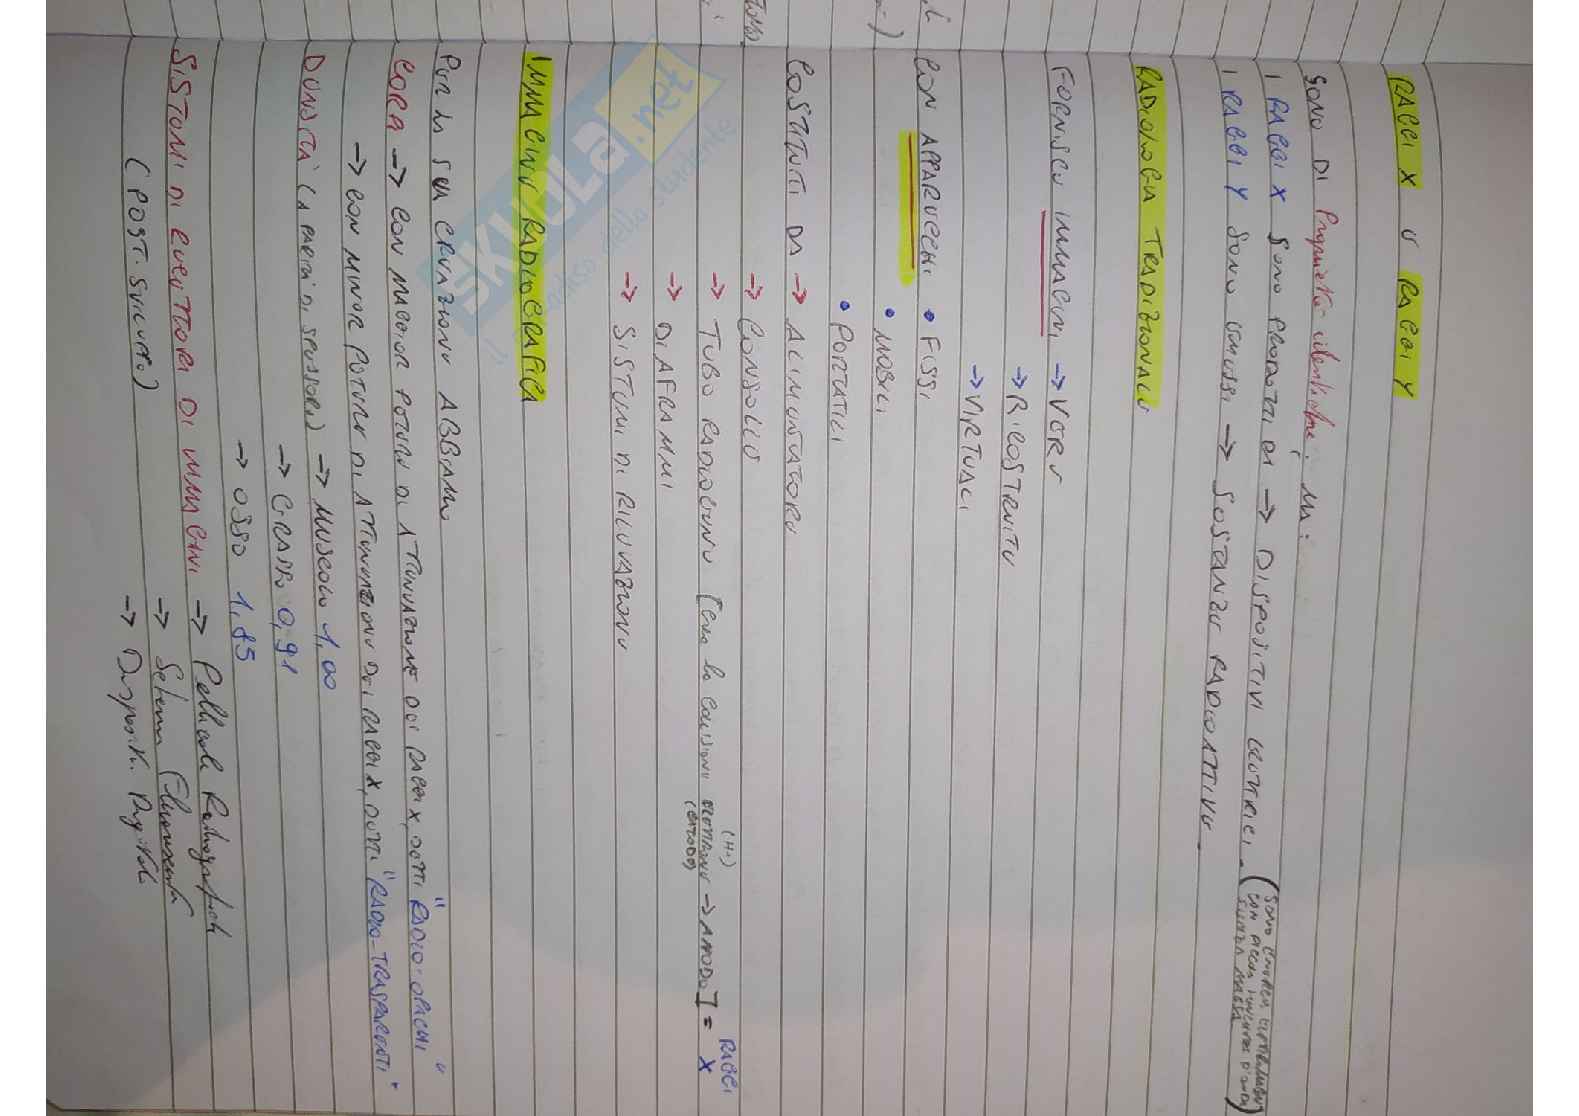 RAGGI X E RAGGI Y
SONO DI Proprietà identiche, MA:
I RAGGI X SONO PRODOTTI DA → DISPOSITIVI ELETTRICI. (SONO ENERGIA
CON PICCOLA D'ONDA
SENZA MASSA)
I RAGGI Y SONO EMESSI → SOSTANZE RADIOATTIVE.
RADIOLOGIA TRADIZIONALE
FORNISCE IMMAGINI → VERE
→ RICOSTRUITE
→ VIRTUALI
CON APPARECCHI • FISSI
• MOBILI
• PORTATILI
COSTITUITI DA → ALIMENTATORE
→ CONSOLLE
→ TUBO RADIOGENO [Crea la collisione ELETTRONE → ANODO] = RAGGI X
(CATODO)
→ DIAFRAMMI
→ SISTEMI DI RILEVAZIONE
IMMAGINE RADIOGRAFICA
PER LA SUA CREAZIONE ABBIAMO
CORPI → CON MAGGIOR POTERE DI ATTENUAZIONE DEI RAGGI X, DETTI "RADIO-OPACHI"
→ CON MINOR POTERE DI ATTENUAZIONE DEI RAGGI X, DETTI "RADIO-TRASPARENTI"
DENSITÀ (A PARITÀ DI SPESSORE) → MUSCOLO 1,00
→ GRASSO 0,91
→ OSSO 1,85
SISTEMI DI RIVELATORI DI IMMAGINI → Pellicole Radiografiche
(POST. SVILUPPO) → Schermi Fluorescenti
→ Dispositivi Digitali
SKUOLA.net
dello studente